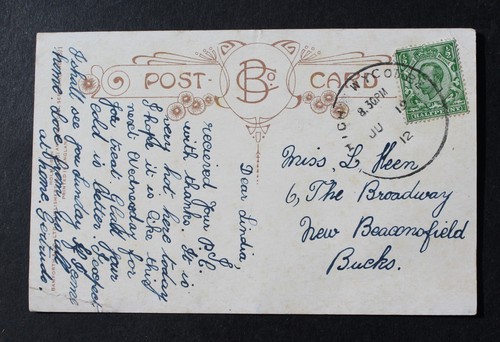 POST CARD
B Co.
HIGH WYCOMBE
8.30PM
JU 19
12
HALFPENNY
Miss. L. Keen
6, The Broadway
New Beaconsfield
Bucks.
Dear Lindia,
I
received your P.C.
with thanks. It is
very hot here today
I hope it is like this
next Wednesday for
you treat. Glad your
Cold is better. I expect
I shall see you Sunday if I come
home. love from
all at home. Gertrude.